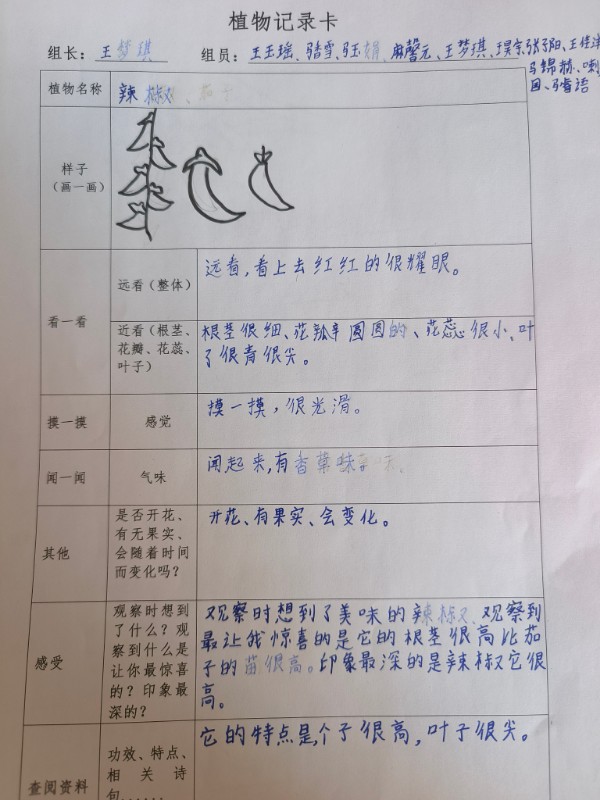 植物记录卡
组长：王梦琪 组员：王玉瑶、马雪、马玉娟、麻馨元、王梦琪、王昊宗、张子阳、王佳洋
马锦赫、喇
国、马睿语
植物名称 辣椒、茄子
样子
（画一画）
看一看
远看（整体） 远看，看上去红红的很耀眼。
近看（根茎、
花瓣、花蕊、
叶子） 根茎很细、花瓣圆圆的、花蕊很小、叶
了很青很尖。
摸一摸 感觉 摸一摸，很光滑。
闻一闻 气味 闻起来，有香草味
其他
是否开花、
有无果实、
会随着时间
而变化吗？
开花、有果实、会变化。
感受
观察时想到
了什么？观
察到什么是
让你最惊喜
的？印象最
深的？
观察时想到了美味的辣椒、观察到
最让我惊喜的是它的根茎很高比茄
子的苗很高。印象最深的是辣椒它很
高。
查阅资料
功效、特点、
相关诗
句......
它的特点是，个子很高，叶子很尖。